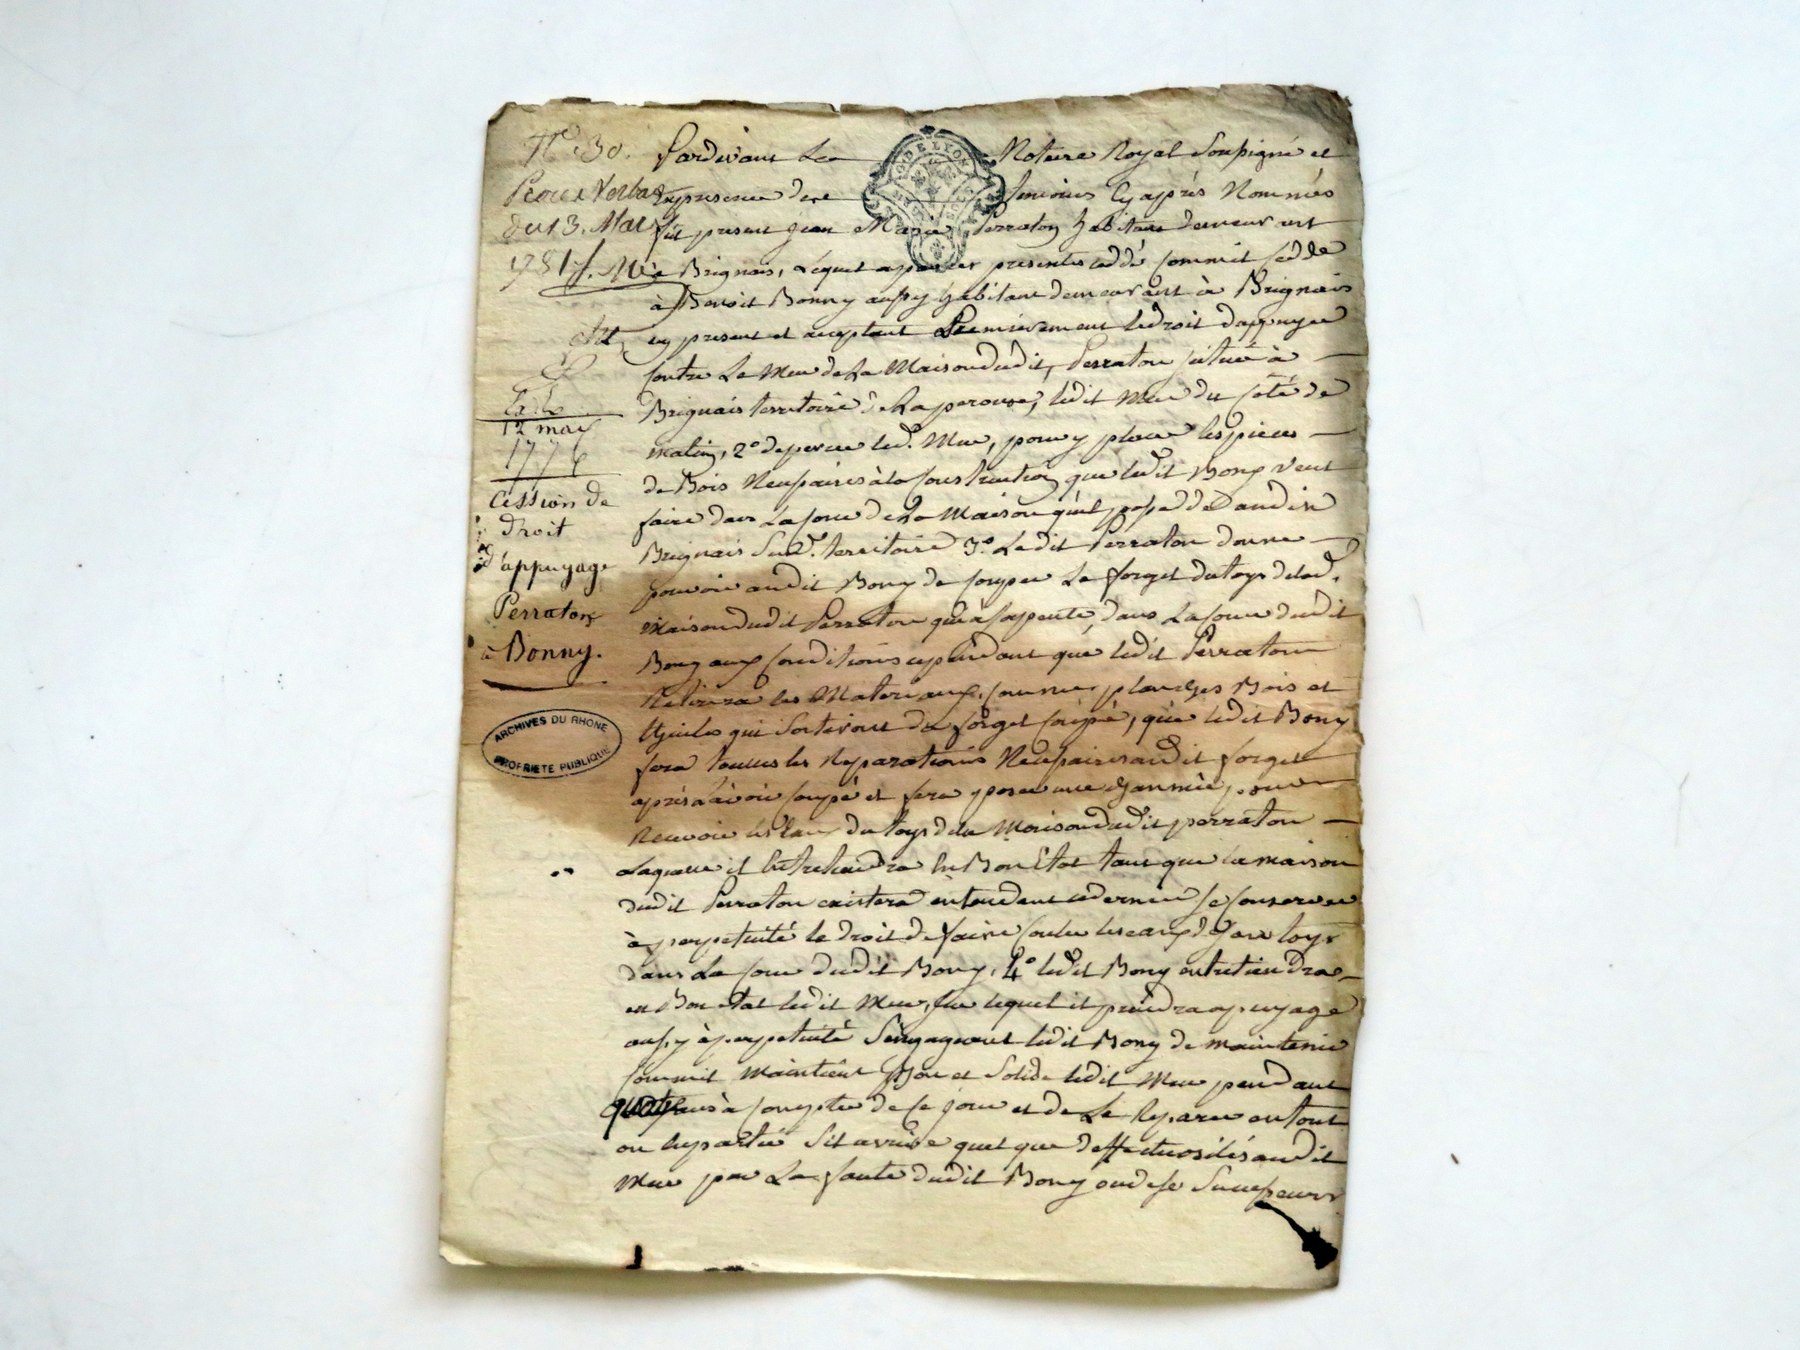 N.º 30.
Procès Verbal
du 13. Mars
1781. M.e
Exp.
12 may
1776
Cession de
Droit
d'appuyage
Perraton
à Bonny.
ARCHIVES DU RHONE
PROPRIETE PUBLIQUE
GEN DE LYON
Pardevant Le Notaire Royal Soussigné et
En presence des temoins Cy après Nommés
fût present jean Marie Perraton habitant demeurant
à Brignais, Lequel a par les presentes cedé comme il cedde
à Benoit Bonny aussy habitant demeurant à Brignais
cy present et acceptant Premièrement le droit d'appuyer
Contre Le Mur de La Maison dudit Perraton située à
Brignais territoire de La perouse, ledit Mur du Coté de
matin, 2.º de percer led. Mur, pour y placer les pieces
de Bois Necessaires à la Construction que ledit Bony veut
faire dans La Cour de La Maison qu'il possedde audit
Brignais Sud. territoire 3.º Ledit Perraton donne
pouvoir audit Bony de Couper Le forget du toys de lad.
Maison dudit Perraton qui à sa pente dans La Cour dudit
Bony aux Conditions cependant que ledit Perraton
Retirera les Materiaux, Comme planches Bois et
thuiles qui Sortiront du forget Coupé, que ledit Bony
fera toutes les Reparations Necessaires audit forget
après L'avoir Coupé et fera poser une pour
Recevoir les Eaux du toys de la Maison dudit perraton
Laquelle il Entretiendra En Bon Etat tant que la maison
dudit Perraton existera entendant ce dernier se Conserver
à perpetuité le droit de faire Couler les eaux de son toys
dans La Cour dudit Bony, 4.º ledit Bony entretiendra
en Bon etat ledit Mur, sur lequel il prendra apuyage
aussy à perpetuité S'engageant ledit Bony de maintenir
Comme il maintient Bon et Solide ledit Mur pendant
ans à Compter de Ce jour et de Le Reparer en tout
ou En partie S'il arrive quelque deffectuosités audit
Mur par La faute dudit Bony ou de se Successeurs